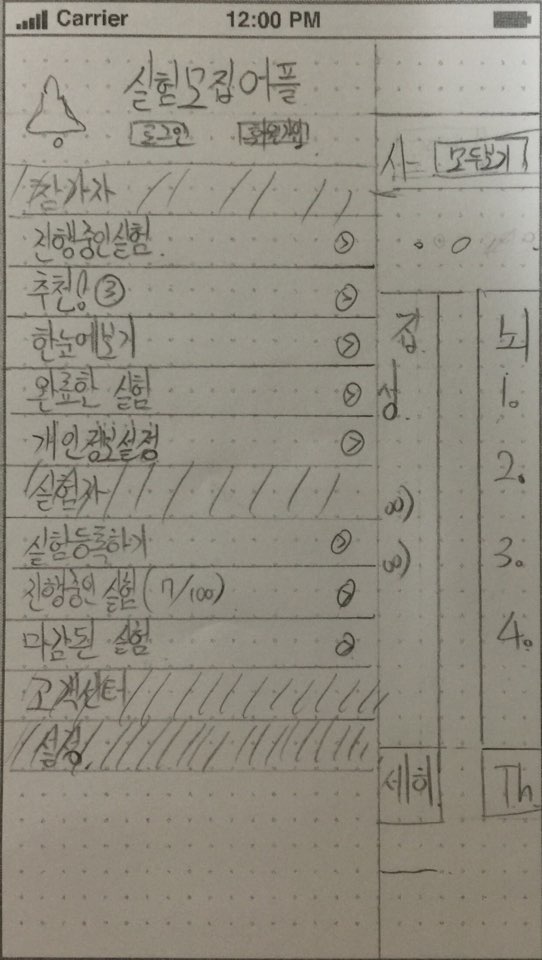 Carrier 12:00 PM
실험모집어플
로그인 회원가입
참가자
진행중인실험
추천! ③
한눈에보기
완료한 실험
개인정보설정
실험자
실험등록하기
진행중인 실험 (7/100)
마감된 실험
고객센터
설정
모두보기
집
성
∞)
∞)
뇌
1.
2.
3.
4.
세히
Th